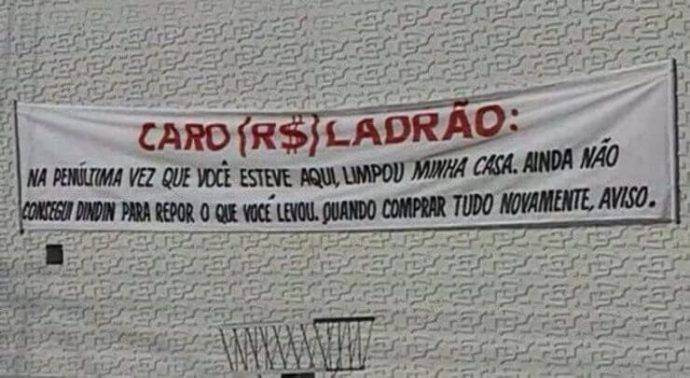 CARO {R$} LADRÃO:
NA PENÚLTIMA VEZ QUE VOCÊ ESTEVE AQUI, LIMPOU MINHA CASA. AINDA NÃO
CONSEGUI DINDIN PARA REPOR O QUE VOCÊ LEVOU. QUANDO COMPRAR TUDO NOVAMENTE, AVISO.